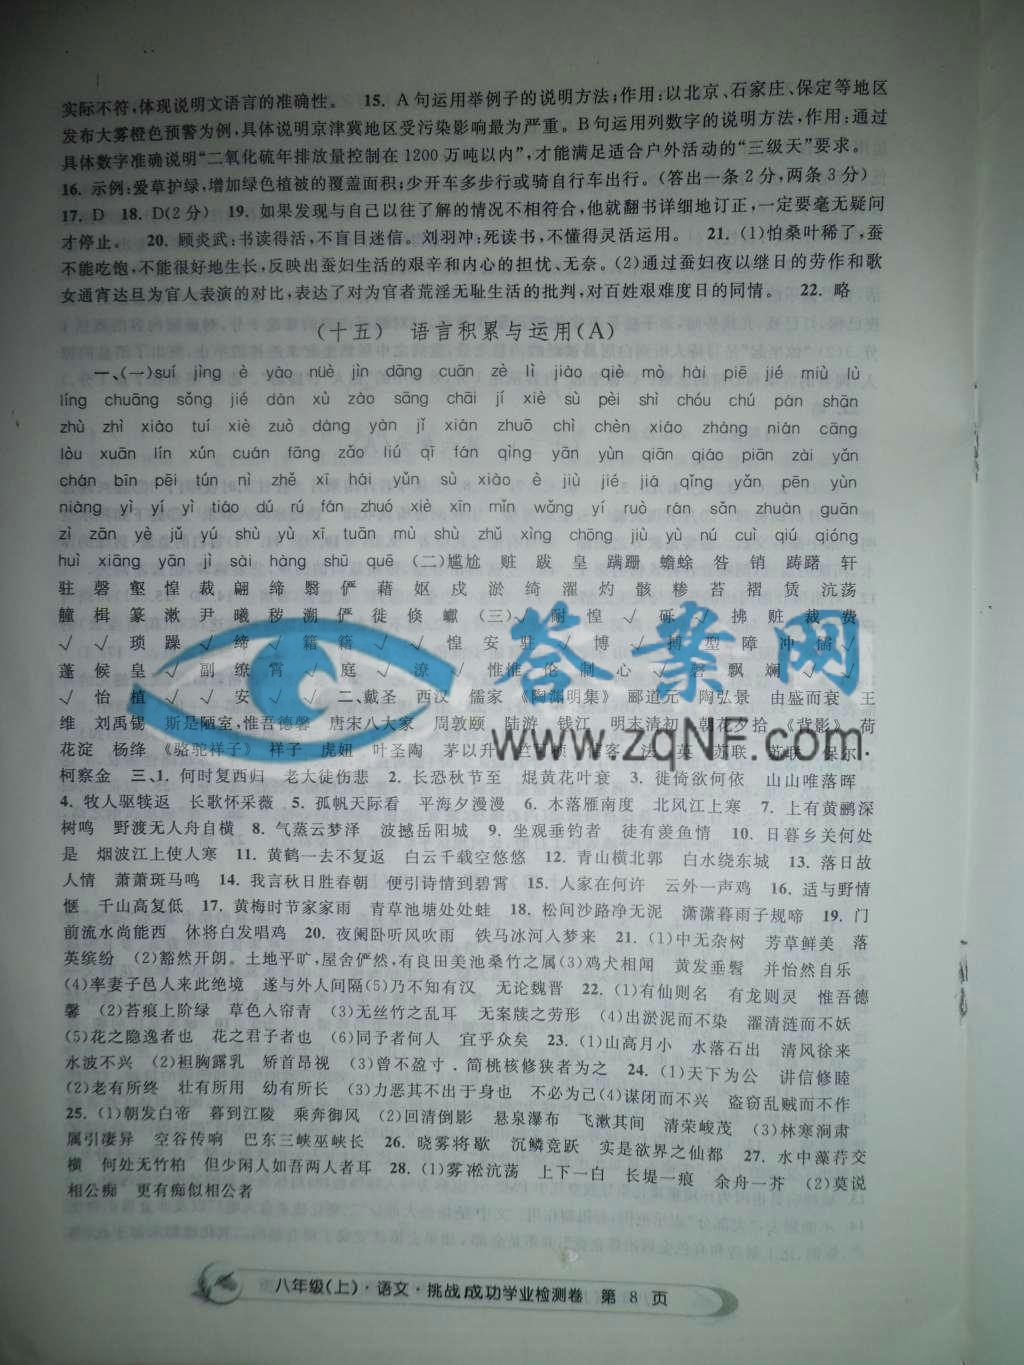 实际不符,体现说明文语言的准确性。 15. A句运用举例子的说明方法;作用:以北京、石家庄、保定等地区
发布大雾橙色预警为例,具体说明京津冀地区受污染影响最为严重。B句运用列数字的说明方法,作用:通过
具体数字准确说明“二氧化硫年排放量控制在1200万吨以内”,才能满足适合户外活动的“三级天”要求。
16. 示例:爱草护绿,增加绿色植被的覆盖面积;少开车多步行或骑自行车出行。(答出一条2分,两条3分)
17. D 18. D(2分) 19. 如果发现与自己以往了解的情况不相符合,他就翻书详细地订正,一定要毫无疑问
才停止。 20. 顾炎武:书读得活,不盲目迷信。刘羽冲:死读书,不懂得灵活运用。 21. (1)怕桑叶稀了,蚕
不能吃饱,不能很好地生长,反映出蚕妇生活的艰辛和内心的担忧、无奈。(2)通过蚕妇夜以继日的劳作和歌
女通宵达旦为官人表演的对比,表达了对为官者荒淫无耻生活的批判,对百姓艰难度日的同情。 22. 略
(十五) 语言积累与运用(A)
一、(一)suí jìng è yáo nüè jìn dāng cuān zè lì jiào qiè mò hài piē jié miù lù
líng chuāng sǒng jié dàn xù zào sāng chāi jí xiè sù pèi shì chóu chú pán shān
zhù zhì xiào tuí xiè zuò dàng yàn jǐ xiàn zhuō chì chèn xiáo zhàng nián cāng
lòu xuān lín xún cuán fāng zǎo liú qī fán qìng yān yùn qiān qiáo piān zài yǎn
chán bīn pēi tún nì zhě xī hái yǔn sù xiào è jiù jié jiá qǐng yǎn pēn yùn
niàng yì yí yì tiáo dú rú fán zhuó xiè xīn mǐn wǎng yí ruò rán sǎn zhuàn guān
zǐ zān yè jǔ yú shù yù xī tuān mù shù zhǔ xìng chōng jiù yù nú cuì qiú qióng
huì xiāng yān jì sài háng shū quē (二)尴尬 赃 跋 皇 蹒跚 蟾蜍 咎 销 踌躇 轩
驻 磬 壑 惶 裁 翩 缔 翳 俨 藉 妪 戍 淤 绮 濯 灼 骸 糁 苔 褶 赁 沆荡
艟 楫 篆 漱 尹 曦 秽 溯 俨 徙 倏 巘 (三)√ 耐 惶 √ 砾 √ 拂 赃 裁 费
√ √ 琐 躁 √ 缔 √ 籍 籍 √ √ 惶 安 驻 √ 博 √ 搏 型 障 冲 储 √
蓬 候 皇 √ 副 缭 宵 √ 庭 √ 潦 √ 惟惟 伦 制 心 √ 磬 飘 斓 √ √
√ 怡 植 √ √ 安 √ √ 二、戴圣 西汉 儒家 《陶渊明集》 郦道元 陶弘景 由盛而衰 王
维 刘禹锡 斯是陋室,惟吾德馨 唐宋八大家 周敦颐 陆游 钱江 明末清初 朝花夕拾 《背影》 荷
花淀 杨绛 《骆驼祥子》 祥子 虎妞 叶圣陶 茅以升 竺可桢 法 英 苏联 苏联 保尔·
柯察金 三、1. 何时复西归 老大徒伤悲 2. 长恐秋节至 焜黄花叶衰 3. 徙倚欲何依 山山唯落晖
4. 牧人驱犊返 长歌怀采薇 5. 孤帆天际看 平海夕漫漫 6. 木落雁南度 北风江上寒 7. 上有黄鹂深
树鸣 野渡无人舟自横 8. 气蒸云梦泽 波撼岳阳城 9. 坐观垂钓者 徒有羡鱼情 10. 日暮乡关何处
是 烟波江上使人寒 11. 黄鹤一去不复返 白云千载空悠悠 12. 青山横北郭 白水绕东城 13. 落日故
人情 萧萧斑马鸣 14. 我言秋日胜春朝 便引诗情到碧霄 15. 人家在何许 云外一声鸡 16. 适与野情
惬 千山高复低 17. 黄梅时节家家雨 青草池塘处处蛙 18. 松间沙路净无泥 潇潇暮雨子规啼 19. 门
前流水尚能西 休将白发唱鸡 20. 夜阑卧听风吹雨 铁马冰河入梦来 21. (1)中无杂树 芳草鲜美 落
英缤纷 (2)豁然开朗。土地平旷,屋舍俨然,有良田美池桑竹之属(3)鸡犬相闻 黄发垂髫 并怡然自乐
(4)率妻子邑人来此绝境 遂与外人间隔(5)乃不知有汉 无论魏晋 22. (1)有仙则名 有龙则灵 惟吾德
馨 (2)苔痕上阶绿 草色入帘青 (3)无丝竹之乱耳 无案牍之劳形 (4)出淤泥而不染 濯清涟而不妖
(5)花之隐逸者也 花之君子者也 (6)同予者何人 宜乎众矣 23. (1)山高月小 水落石出 清风徐来
水波不兴 (2)袒胸露乳 矫首昂视 (3)曾不盈寸 . 简桃核修狭者为之 24. (1)天下为公 讲信修睦
(2)老有所终 壮有所用 幼有所长 (3)力恶其不出于身也 不必为己(4)谋闭而不兴 盗窃乱贼而不作
25. (1)朝发白帝 暮到江陵 乘奔御风 (2)回清倒影 悬泉瀑布 飞漱其间 清荣峻茂 (3)林寒涧肃
属引凄异 空谷传响 巴东三峡巫峡长 26. 晓雾将歇 沉鳞竞跃 实是欲界之仙都 27. 水中藻荇交
横 何处无竹柏 但少闲人如吾两人者耳 28. (1)雾凇沆荡 上下一白 长堤一痕 余舟一芥 (2)莫说
相公痴 更有痴似相公者
答案网
www.zqNF.com
八年级(上)·语文·挑战成功学业检测卷 第 8 页